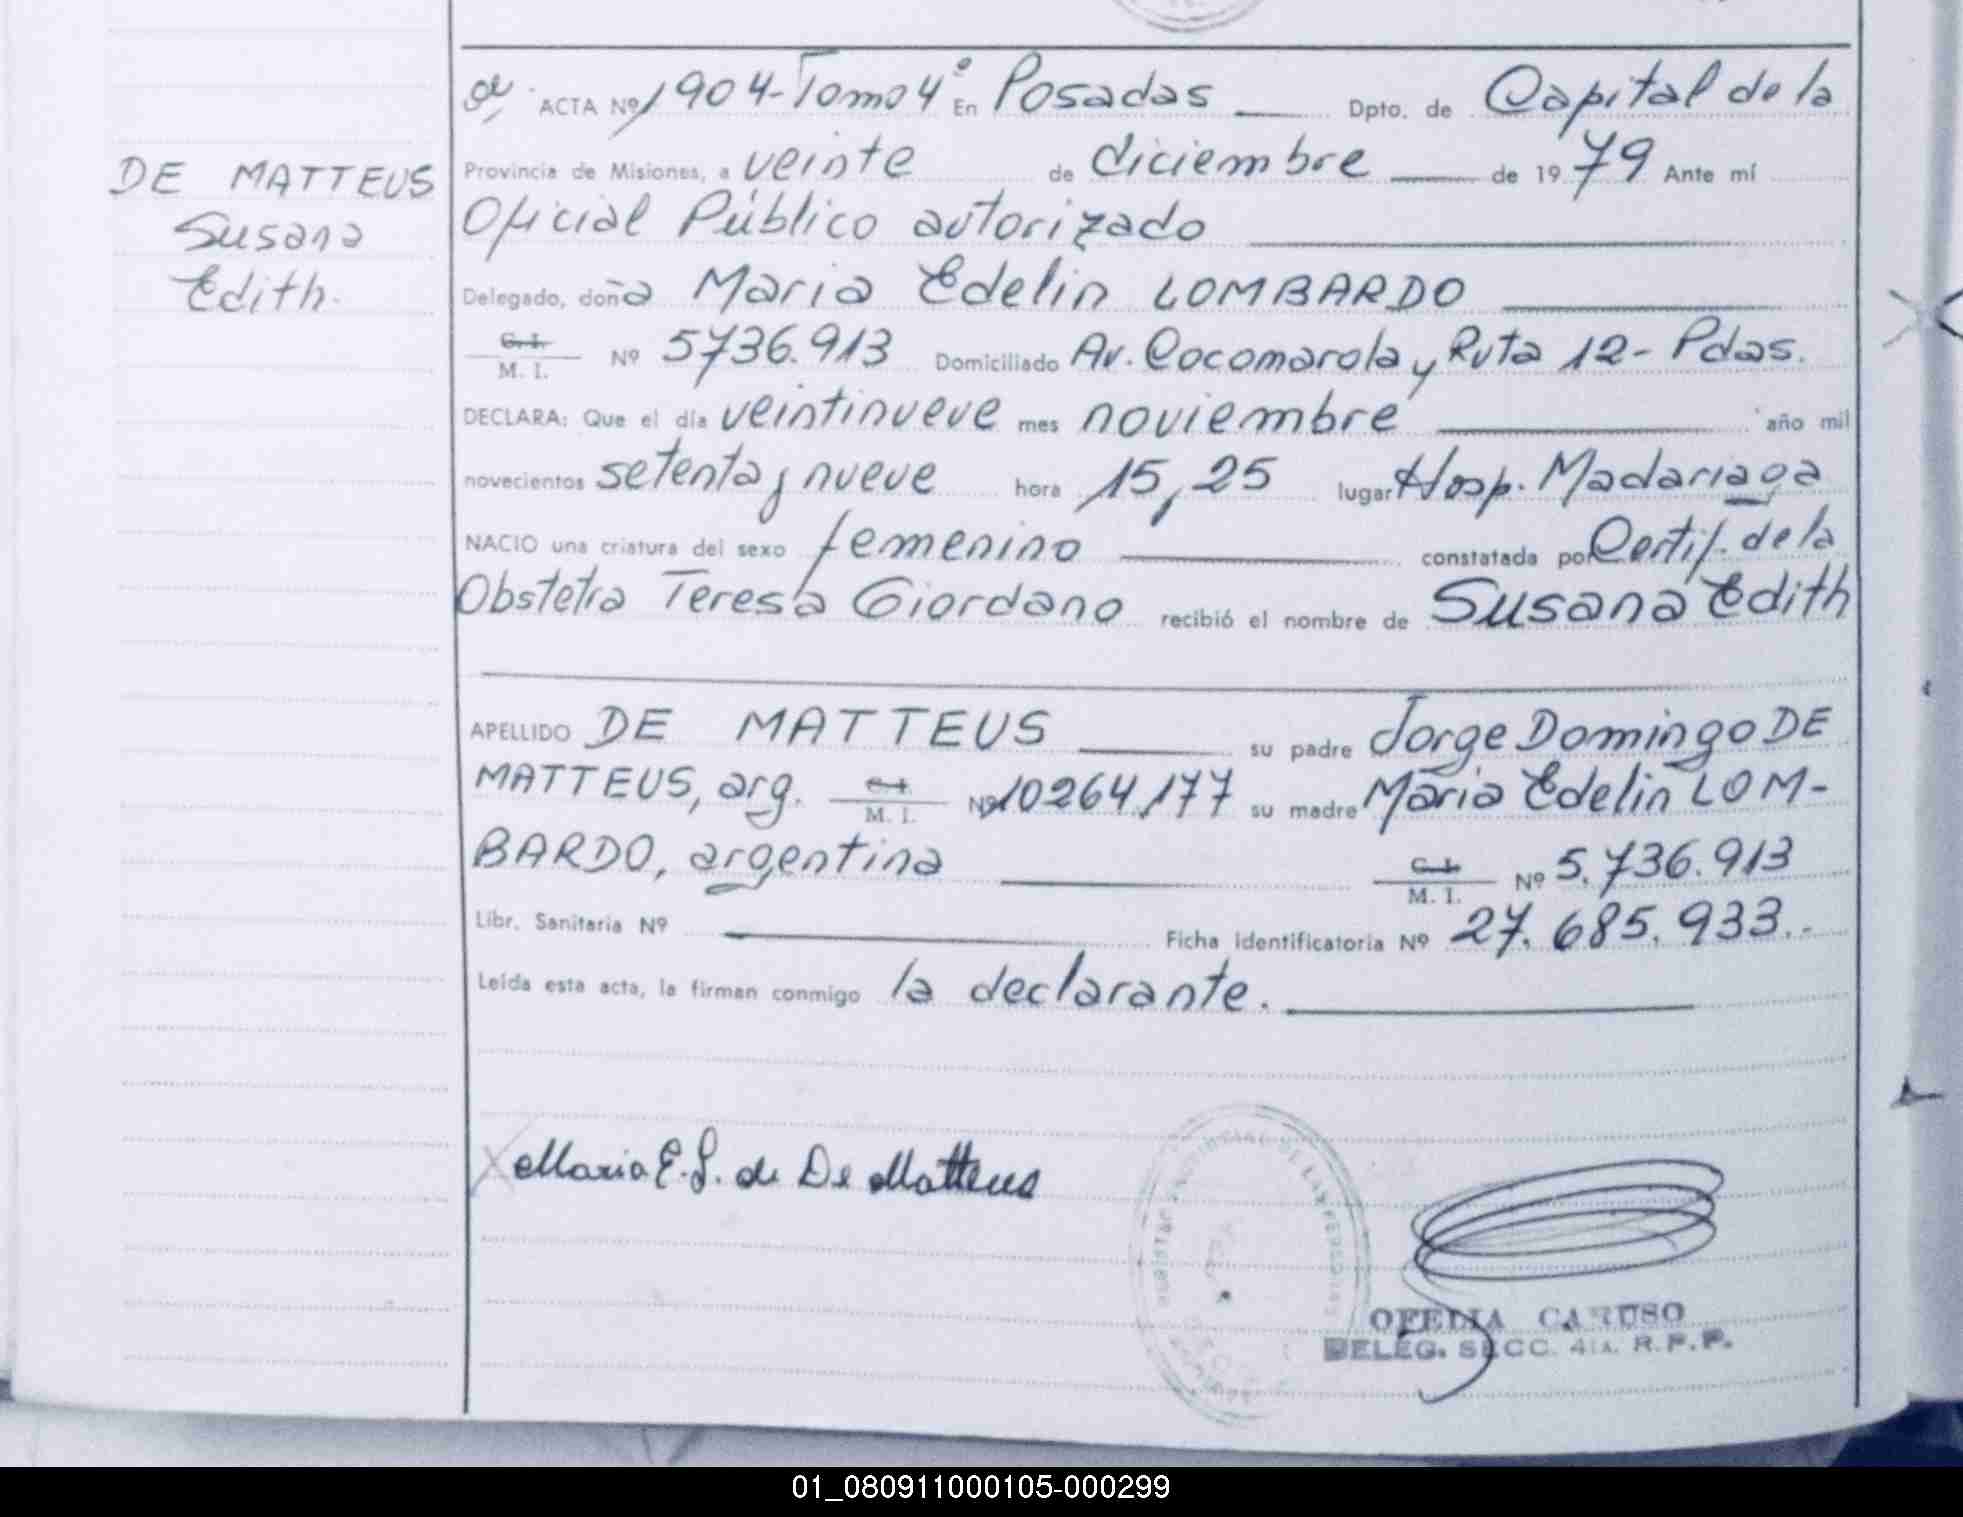 DE MATTEUS
Susana
Edith.
ACTA Nº 1904-Tomo 4º En Posadas Dpto. de Capital de la
Provincia de Misiones, a veinte de diciembre de 1979 Ante mí
Oficial Público autorizado
Delegado, doña Maria Edelin LOMBARDO
C. I. M. I. Nº 5736.913 Domiciliado Av. Cocomarola y Ruta 12- Pdas.
DECLARA: Que el día veintinueve mes noviembre año mil
novecientos setenta y nueve hora 15,25 lugar Hosp. Madariaga
NACIO una criatura del sexo femenino constatada por Certif. de la
Obstetra Teresa Giordano recibió el nombre de Susana Edith
APELLIDO DE MATTEUS su padre Jorge Domingo DE
MATTEUS, arg. C. I. M. I. Nº 10264.177 su madre Maria Edelin LOM-
BARDO, argentina C. I. M. I. Nº 5.736.913
Libr. Sanitaria Nº Ficha Identificatoria Nº 27.685.933.-
Leída esta acta, la firman conmigo la declarante.
Maria E. L. de De Matteus
OFELIA CARUSO
DELEG. SECC. 4ta. R.P.P.
01_080911000105-000299